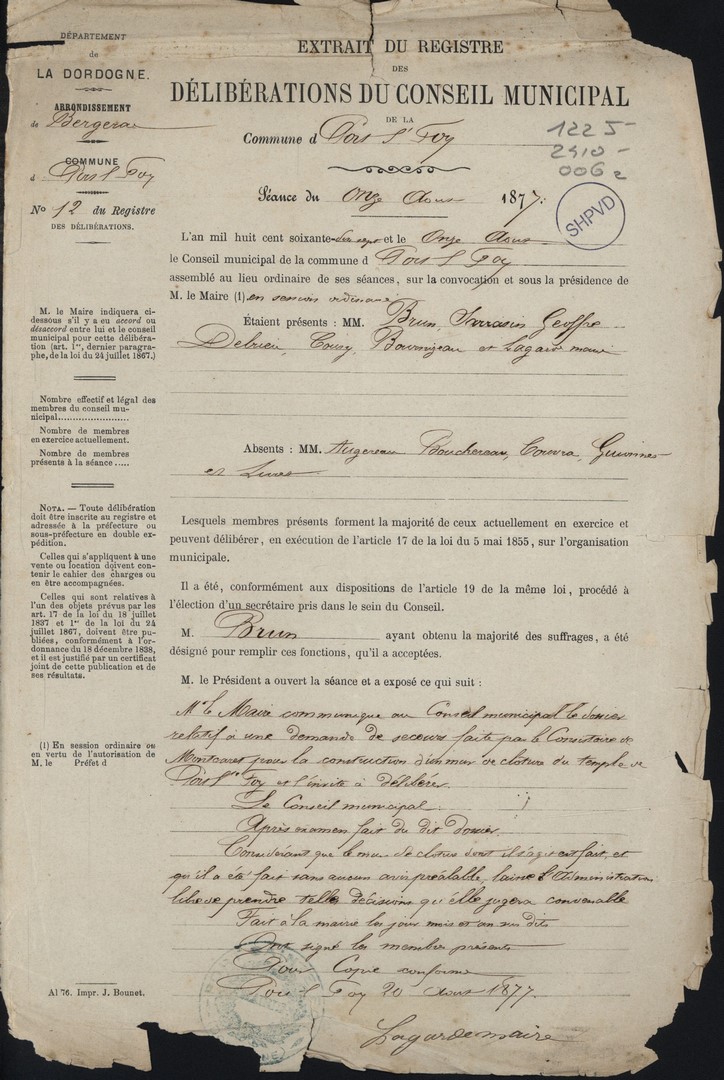 DÉPARTEMENT
de
LA DORDOGNE.
ARRONDISSEMENT
de Bergerac
COMMUNE
d Port Ste Foy
No 12 du Registre
DES DÉLIBÉRATIONS.
EXTRAIT DU REGISTRE
DES
DÉLIBÉRATIONS DU CONSEIL MUNICIPAL
DE LA
Commune d Port Ste Foy
1225-
2410-
006 2
Séance du Onze Aout 1877.
SHPVD
L'an mil huit cent soixante-dix sept et le Onze Aout
le Conseil municipal de la commune d Port Ste Foy
assemblé au lieu ordinaire de ses séances, sur la convocation et sous la présidence de
M. le Maire (1) en session ordinaire
Étaient présents : MM. Brun, Sarrazin Geoffre
Delrieu, Coursy, Bournizeau et Lagarde maire
Absents : MM. Augereau Bouchereau, Couvra,
et
Lesquels membres présents forment la majorité de ceux actuellement en exercice et
peuvent délibérer, en exécution de l'article 17 de la loi du 5 mai 1855, sur l'organisation
municipale.
Il a été, conformément aux dispositions de l'article 19 de la même loi, procédé à
l'élection d'un secrétaire pris dans le sein du Conseil.
M. Brun ayant obtenu la majorité des suffrages, a été
désigné pour remplir ces fonctions, qu'il a acceptées.
M. le Président a ouvert la séance et a exposé ce qui suit :
Mr le Maire communique au Conseil municipal le dossier
relatif à une demande de secours faite par le Consistoire de
Montcaret pour la construction d'un mur de cloture du temple de
Port Ste Foy et l'invite à délibérer.
Le Conseil municipal :
Après examen fait du dit dossier.
Considérant que le mur de cloture dont il s'agit est fait, et
qu'il a été fait sans aucun avis préalable, laisse l'Administration
libre de prendre telle décision qu'elle jugera convenable
Fait à la mairie les jour mois et an sus dits
Ont signé les membres présents
Pour Copie conforme
Port Ste Foy 20 Aout 1877.
Lagarde maire
M. le Maire indiquera ci-
dessous s'il y a eu accord ou
désaccord entre lui et le conseil
municipal pour cette délibéra-
tion (art. 1er, dernier paragra-
phe, de la loi du 24 juillet 1867.)
Nombre effectif et légal des
membres du conseil mu-
nicipal
Nombre de membres
en exercice actuellement.
Nombre de membres
présents à la séance
NOTA. — Toute délibération
doit être inscrite au registre et
adressée à la préfecture ou
sous-préfecture en double ex-
pédition.
Celles qui s'appliquent à une
vente ou location doivent con-
tenir le cahier des charges ou
en être accompagnées.
Celles qui sont relatives à
l'un des objets prévus par les
art. 17 de la loi du 18 juillet
1837 et 1er de la loi du 24
juillet 1867, doivent être pu-
bliées, conformément à l'or-
donnance du 18 décembre 1838,
et il est justifié par un certificat
joint de cette publication et de
ses résultats.
(1) En session ordinaire ou
en vertu de l'autorisation de
M. le Préfet d
Al 76. Impr. J. Bounet.